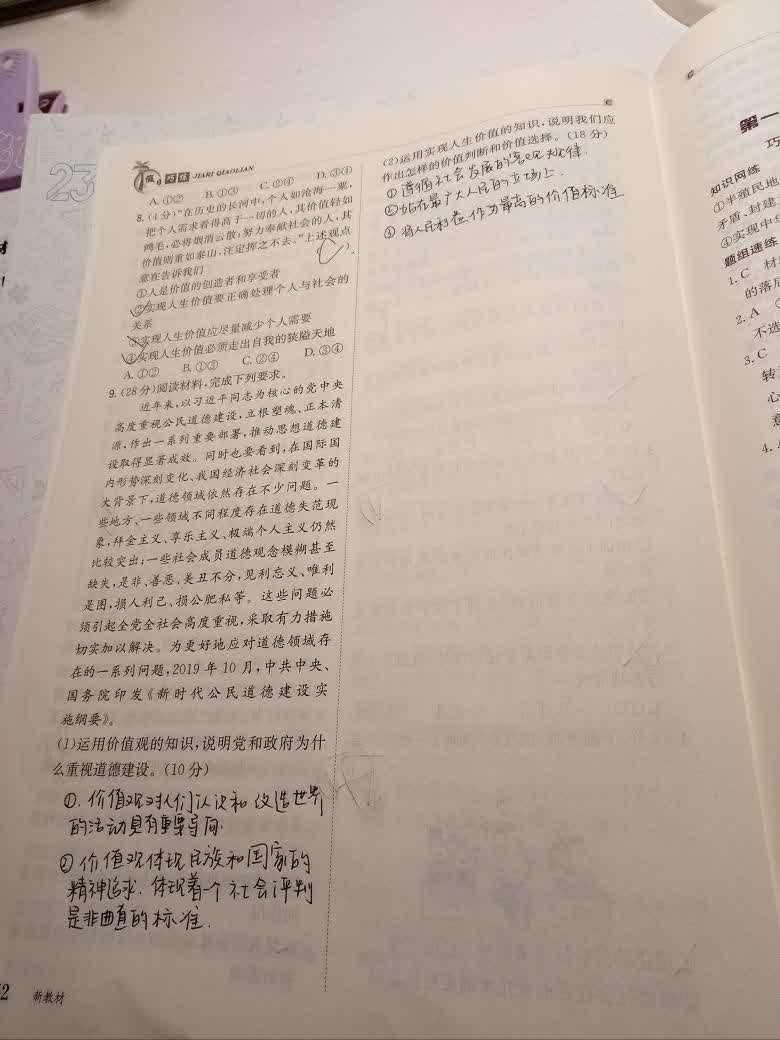 假日 巧练 JIARI QIAOLIAN
A.①② B.①③ C.②④ D.③④
8.(4分)“在历史的长河中,个人如沧海一粟,
把个人需求看得高于一切的人,其价值轻如
鸿毛,必将烟消云散;努力奉献社会的人,其
价值则重如泰山,注定挥之不去。”上述观点
意在告诉我们 ( C ).
①人是价值的创造者和享受者
②实现人生价值要正确处理个人与社会的
关系
③实现人生价值应尽量减少个人需要
④实现人生价值必须走出自我的狭隘天地
A.①② B.①③ C.②④ D.③④
9.(28分)阅读材料,完成下列要求。
近年来,以习近平同志为核心的党中央
高度重视公民道德建设,立根塑魂、正本清
源,作出一系列重要部署,推动思想道德建
设取得显著成效。同时也要看到,在国际国
内形势深刻变化、我国经济社会深刻变革的
大背景下,道德领域依然存在不少问题。一
些地方、一些领域不同程度存在道德失范现
象,拜金主义、享乐主义、极端个人主义仍然
比较突出;一些社会成员道德观念模糊甚至
缺失,是非、善恶、美丑不分,见利忘义、唯利
是图,损人利己、损公肥私等。这些问题必
须引起全党全社会高度重视,采取有力措施
切实加以解决。为更好地应对道德领域存
在的一系列问题,2019年10月,中共中央、
国务院印发《新时代公民道德建设实
施纲要》。
(1)运用价值观的知识,说明党和政府为什
么重视道德建设。(10分)
①.价值观对人们认识和改造世界
的活动具有重要导向.
②价值观体现民族和国家的
精神追求.体现着一个社会评判
是非曲直的标准.
2 新教材
(2)运用实现人生价值的知识,说明我们应
作出怎样的价值判断和价值选择。(18分)
①遵循社会发展的客观规律.
②站在最广大人民的立场上.
③将人民利益作为最高的价值标准
第一
巧
知识网络
①半殖民地
矛盾、封建
④实现中
题组速练
1.C 材
的落后
2.A
不选
3.C
转
心
意
4.